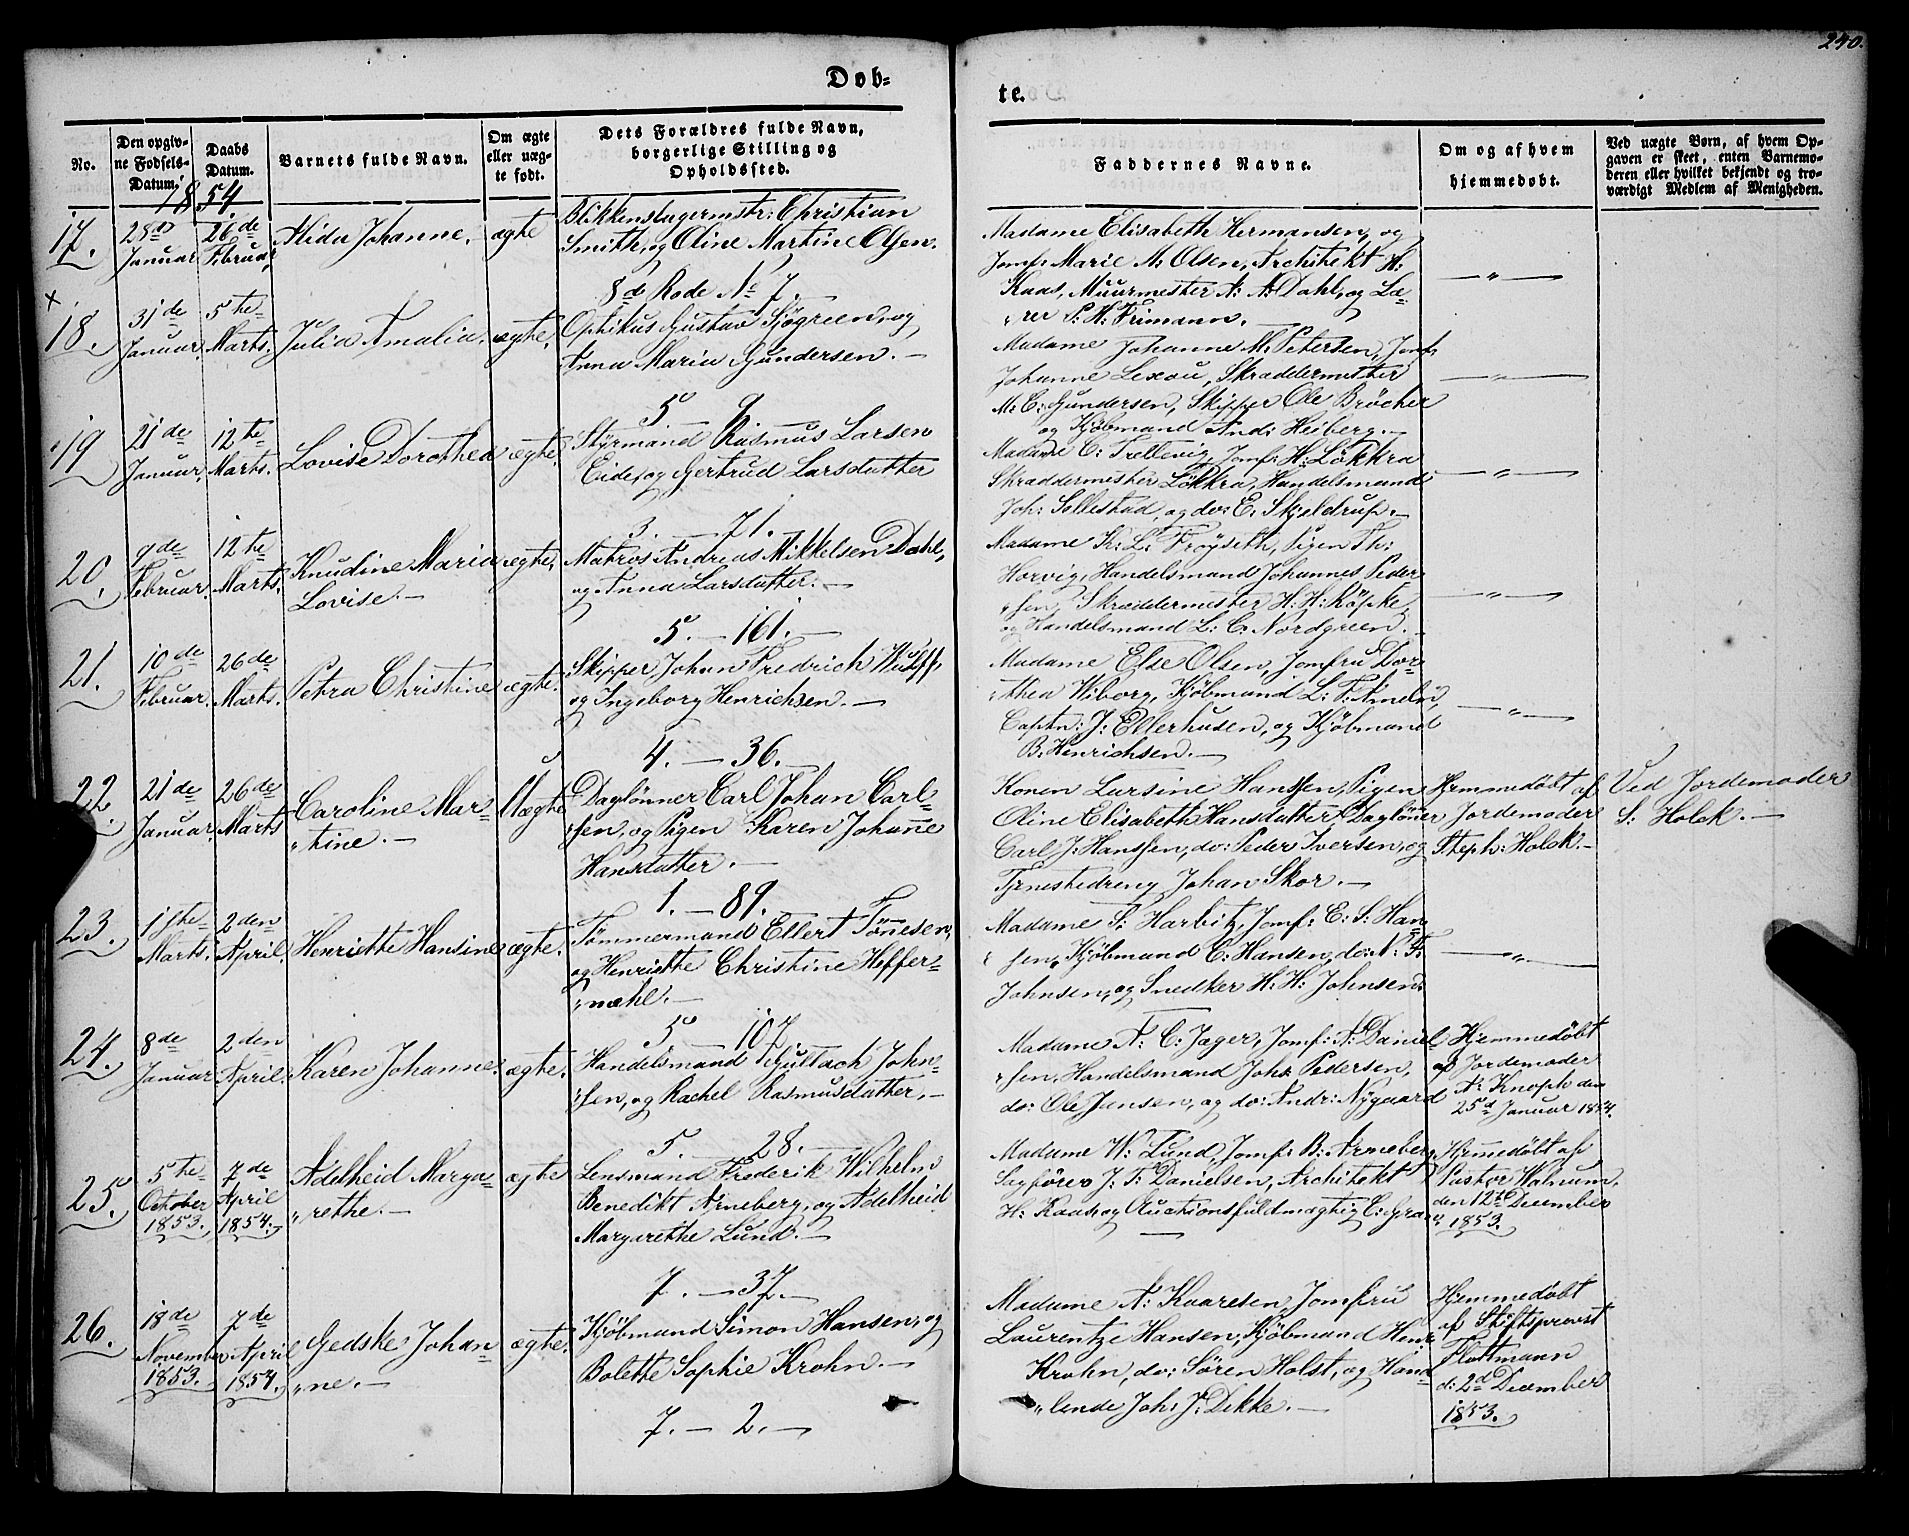 240.
Døb-
te.
No.
Den opgiv-
ne Fødsels-
Datum.
Daabs
Datum.
Barnets fulde Navn.
Om ægte
eller uæg-
te født.
Dets Forældres fulde Navn,
borgerlige Stilling og
Opholdssted.
Faddernes Navne.
Om og af hvem
hjemmedøbt.
Ved uægte Børn, af hvem Op-
gaven er skeet, enten Barnemo-
deren eller hvilket bekjendt og tro-
værdigt Medlem af Menigheden.
1854
17.
28de
Januar
26de
Februar
Alida Johanne.
ægte
Blikkenslagermstr: Christian
Smith, og Oline Martine Olsen.
8de Rode No 7.
Madame Elisabeth Hermansen, og
Jomf: Marie M. Olsen, Architekt H:
Kaas, Muurmester A: A: Dahl, og Læ-
"rer P. H. Frimann.
— " —
×
18.
31de
Januar
5te
Marts.
Julia Amalia.
ægte.
Optikus Gustav Sjøgreen, og
Anna Maria Gundersen. —
5 9.
Madame Johanne M: Petersen, Jomf:
Johanne Lexau, Skræddermester
M: C: Gundersen, Skipper Ole Bröcher
og Kjöbmand And: Heiberg. —
— " —
19
21de
Januar.
12te
Marts.
Lovise Dorothea
ægte.
Styrmand Rasmus Larsen
Eide, og Gertrud Larsdatter
3. — 71. —
Madame C: Trellevig, Jomf: H: Lökkra
Skræddermester Lökkra, Handelsmand
Joh: Sollestad, og do: E. Skjeldrup. —
— " —
20.
7de
Februar.
12te
Marts.
Knudine Maria
Lovise. —
ægte.
Matros Andreas Mikkelsen Dahl,
og Anna Larsdatter. —
5. — 161. —
Madame K: L: Fröyseth, Pigen Th:
Horvig, Handelsmand Johannes Peder-
"sen, Skræddermester H: H: Röpke,
og Handelsmand L: C. Nordgreen. —
— " —
21.
10de
Februar.
26de
Marts.
Petra Christine
ægte.
Skipper Johan Fredrich Wulff,
og Ingeborg Henrichsen. —
4. — 36. —
Madame Else Olsen, Jomfru Dor-
"thea Wiborg, Kjöbmand L: F: Ameln,
Captn: J: Ellerhusen, og Kjöbmand
B. Henrichsen. —
— " —
22
21de
Januar.
26de
Marts
Caroline Mar-
"tine. —
Uægte
Daglønner Carl Johan Carl-
"sen, og Pigen Karen Johanne
Hansdatter. —
1. — 89.
Konen Lursine Hanssen, Pigen
Oline Elisabeth Hansdatter, Daglöner
Carl J: Hanssen, do: Peder Iversen, og
Tjenestedreng Johan Skor. —
Hjemmedöbt af
Jordemoder
Steph: Holck. —
Ved Jordemoder
S: Holck. —
23.
1ste
Marts.
2den
April.
Henriette Hansine
ægte.
Tömmermand Ellert Tönesen,
og Henriette Christine Heffer-
"mehl. —
5. — 107
Madame S: Harbitz, Jomf: E: S: Han-
"sen, Kjöbmand C: Hansen, do: N: F:
Johnsen, og Snedker H: H: Johnsen.
— " —
24.
8de
Januar
2den
April.
Karen Johanne.
ægte.
Handelsmand Gullach John-
"sen, og Rachel Rasmusdatter. —
5. — 28. —
Madame A: C: Jager, Jomf: A: Daniel-
"sen, Handelsmand Joh: Pedersen,
do: Ole Jansen, og do: Andr: Nygaard
Hjemmedöbt
af Jordemoder
A: Knoph den
25d Januar 1854.
25.
5te
October
1853.
7de
April
1854.
Adelheid Marga-
"rethe. —
ægte
Lensmand Frederik Wilhelm
Benedikt Arneberg, og Adelheid
Margarethe Lund. —
7. — 37. —
Madame W: Lund, Jomf: B: Arneberg
Sagförer J: F: Danielsen, Architekt
H: Kaas, og Auctionsfuldmægtig C: Gran
Hjemedöbt af
Pastor Walnum.
den 12te December
1853.
26.
18de
November
1853.
7de
April
1854.
Gedske Johan-
"ne. —
ægte.
Kjöbmand Simon Hansen, og
Bolette Sophie Krohn. —
7. — 2. —
Madame A: Kaaresen, Jomfru
Laurentze Hansen, Kjöbmand Henr:
Krohn, do: Sören Holst, og Hand-
"lende Joh: J: Dekke. —
Hjemmedöbt
af Stiftsprovst
Flottmann
d: 2d December
1853.